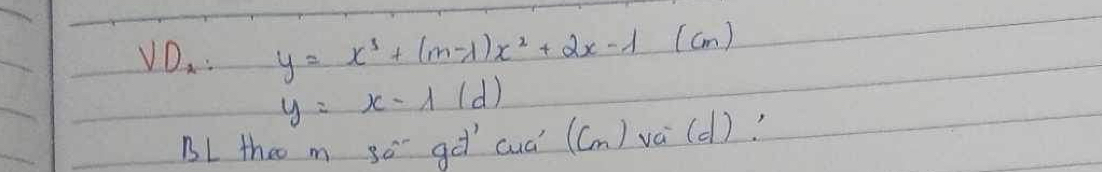 VD₁: y = x³ + (m-1)x² + 2x - 1 (Cm)
y = x - 1 (d)
BL theo m số gđ' của (Cm) và (d):